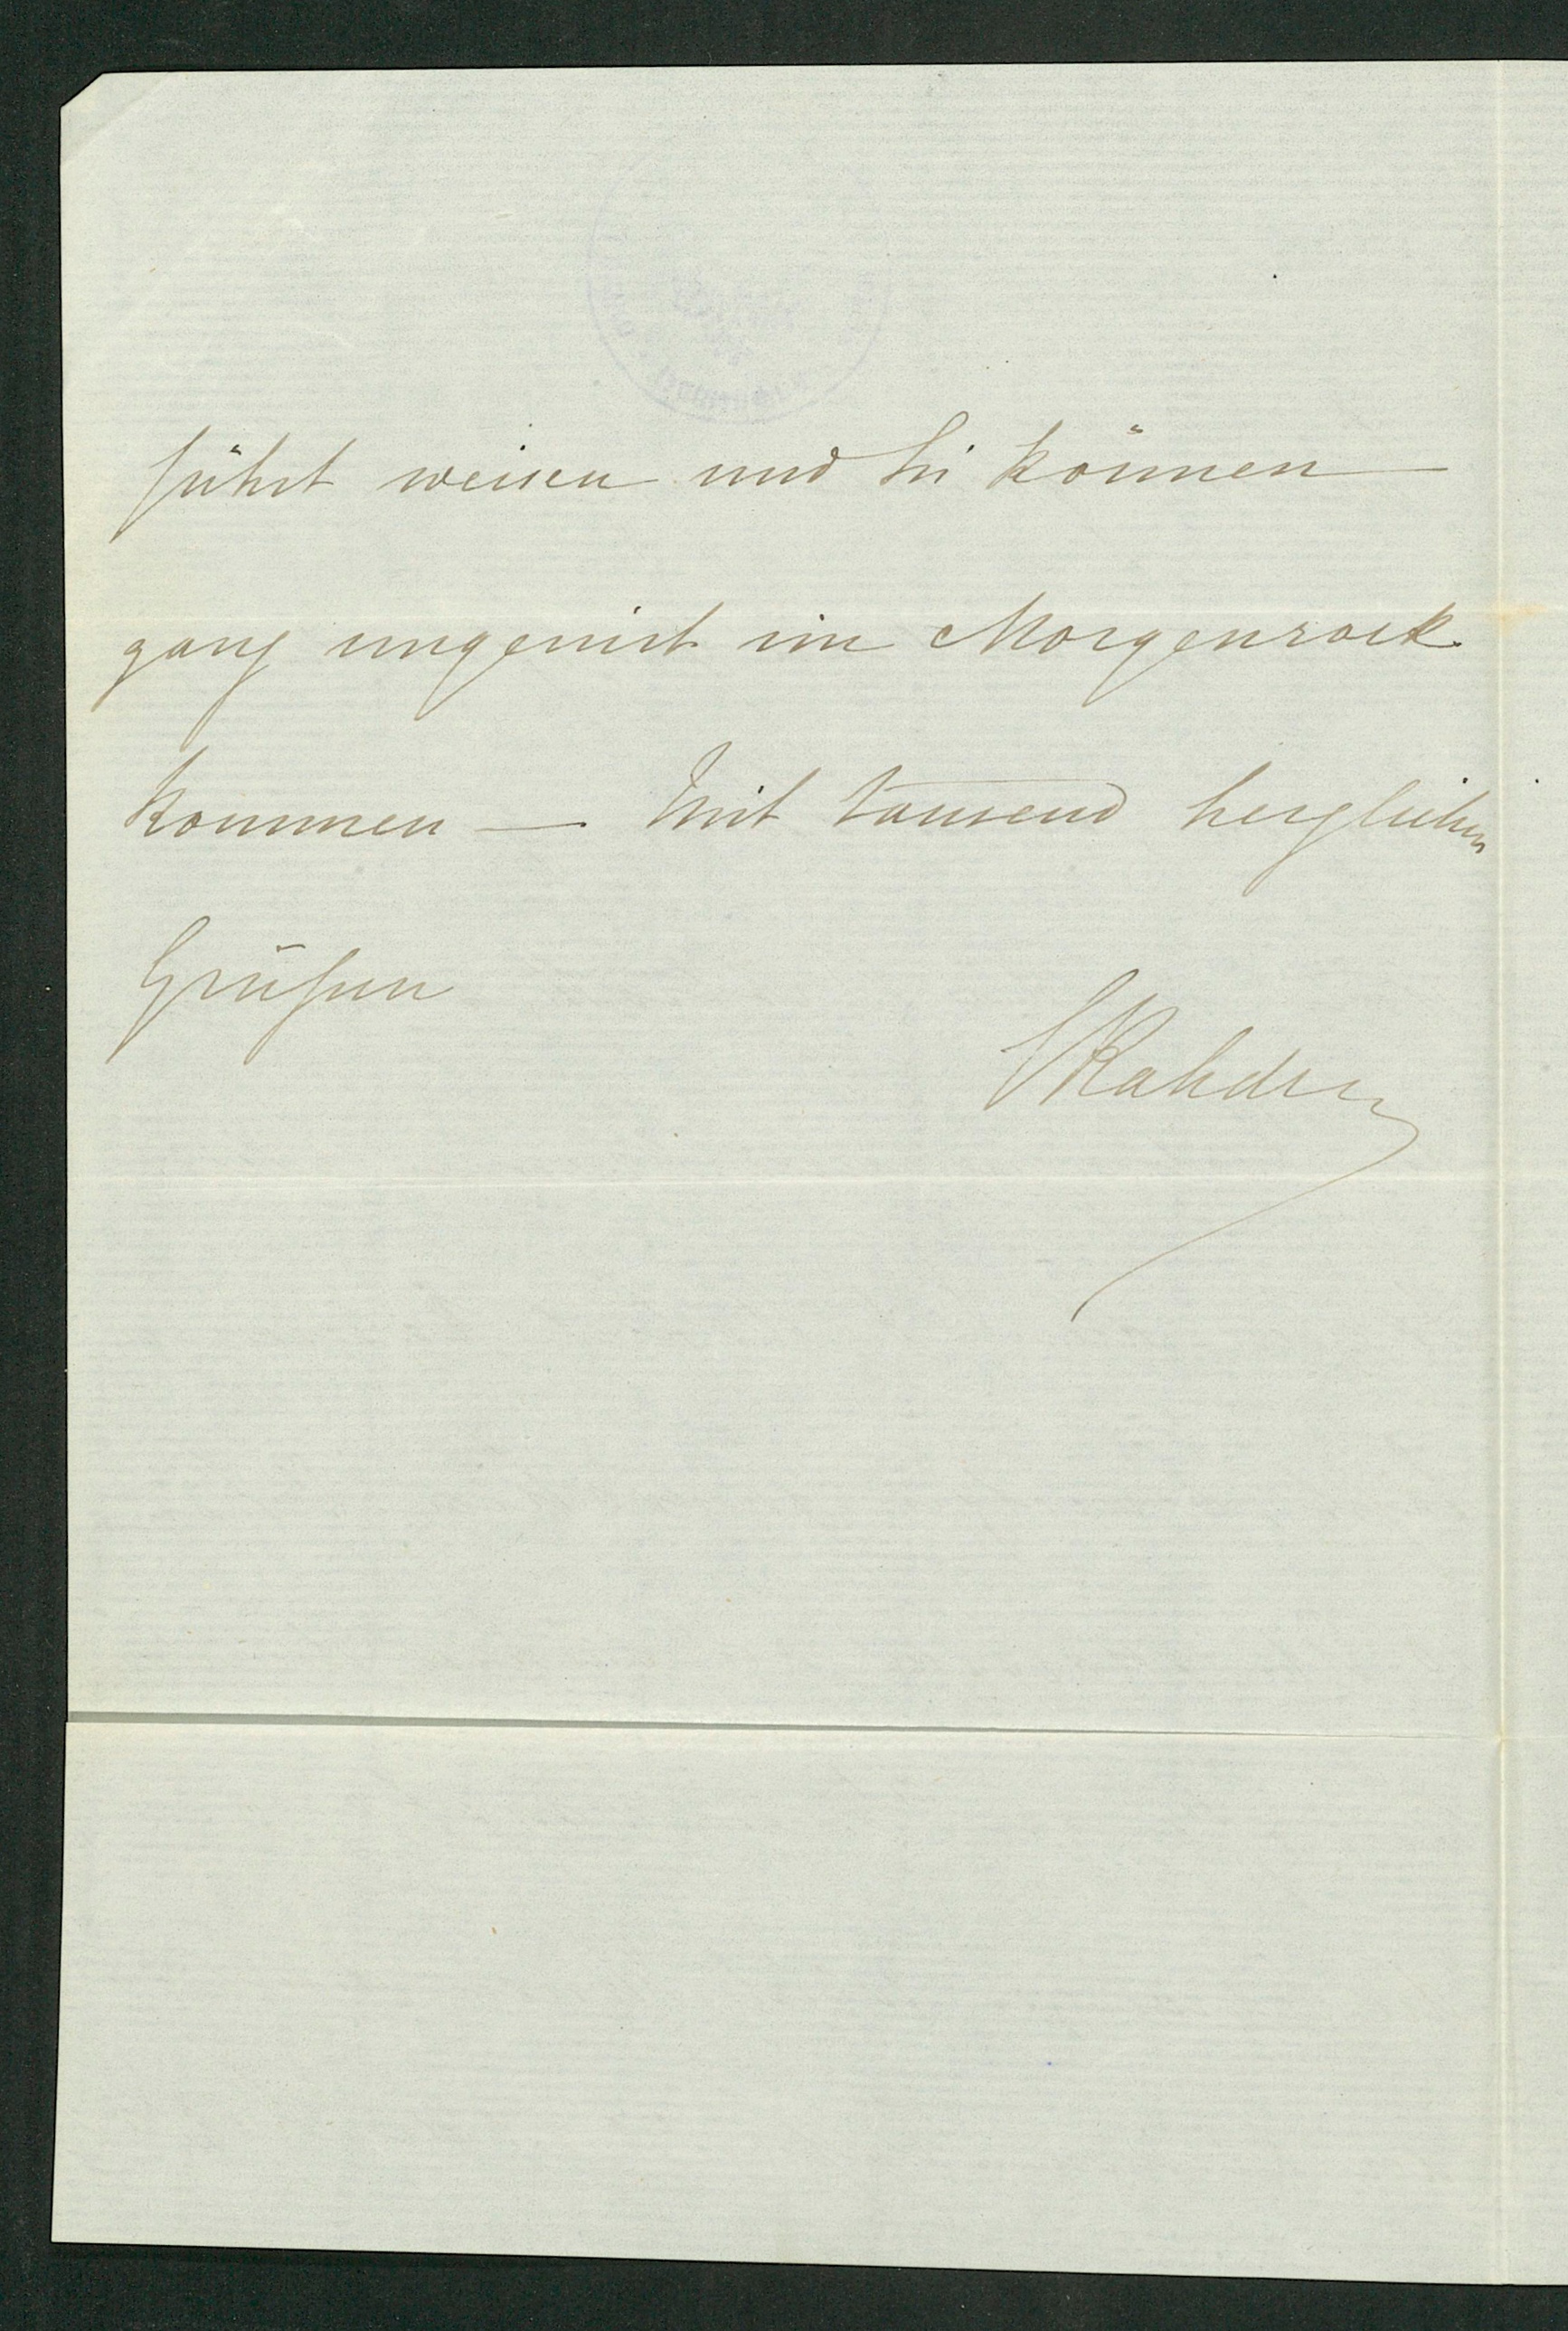 führt weisen und Sie können
ganz ungenirt im Morgenrock
kommen — Mit tausend herzlichen
Grüßen
ERahden